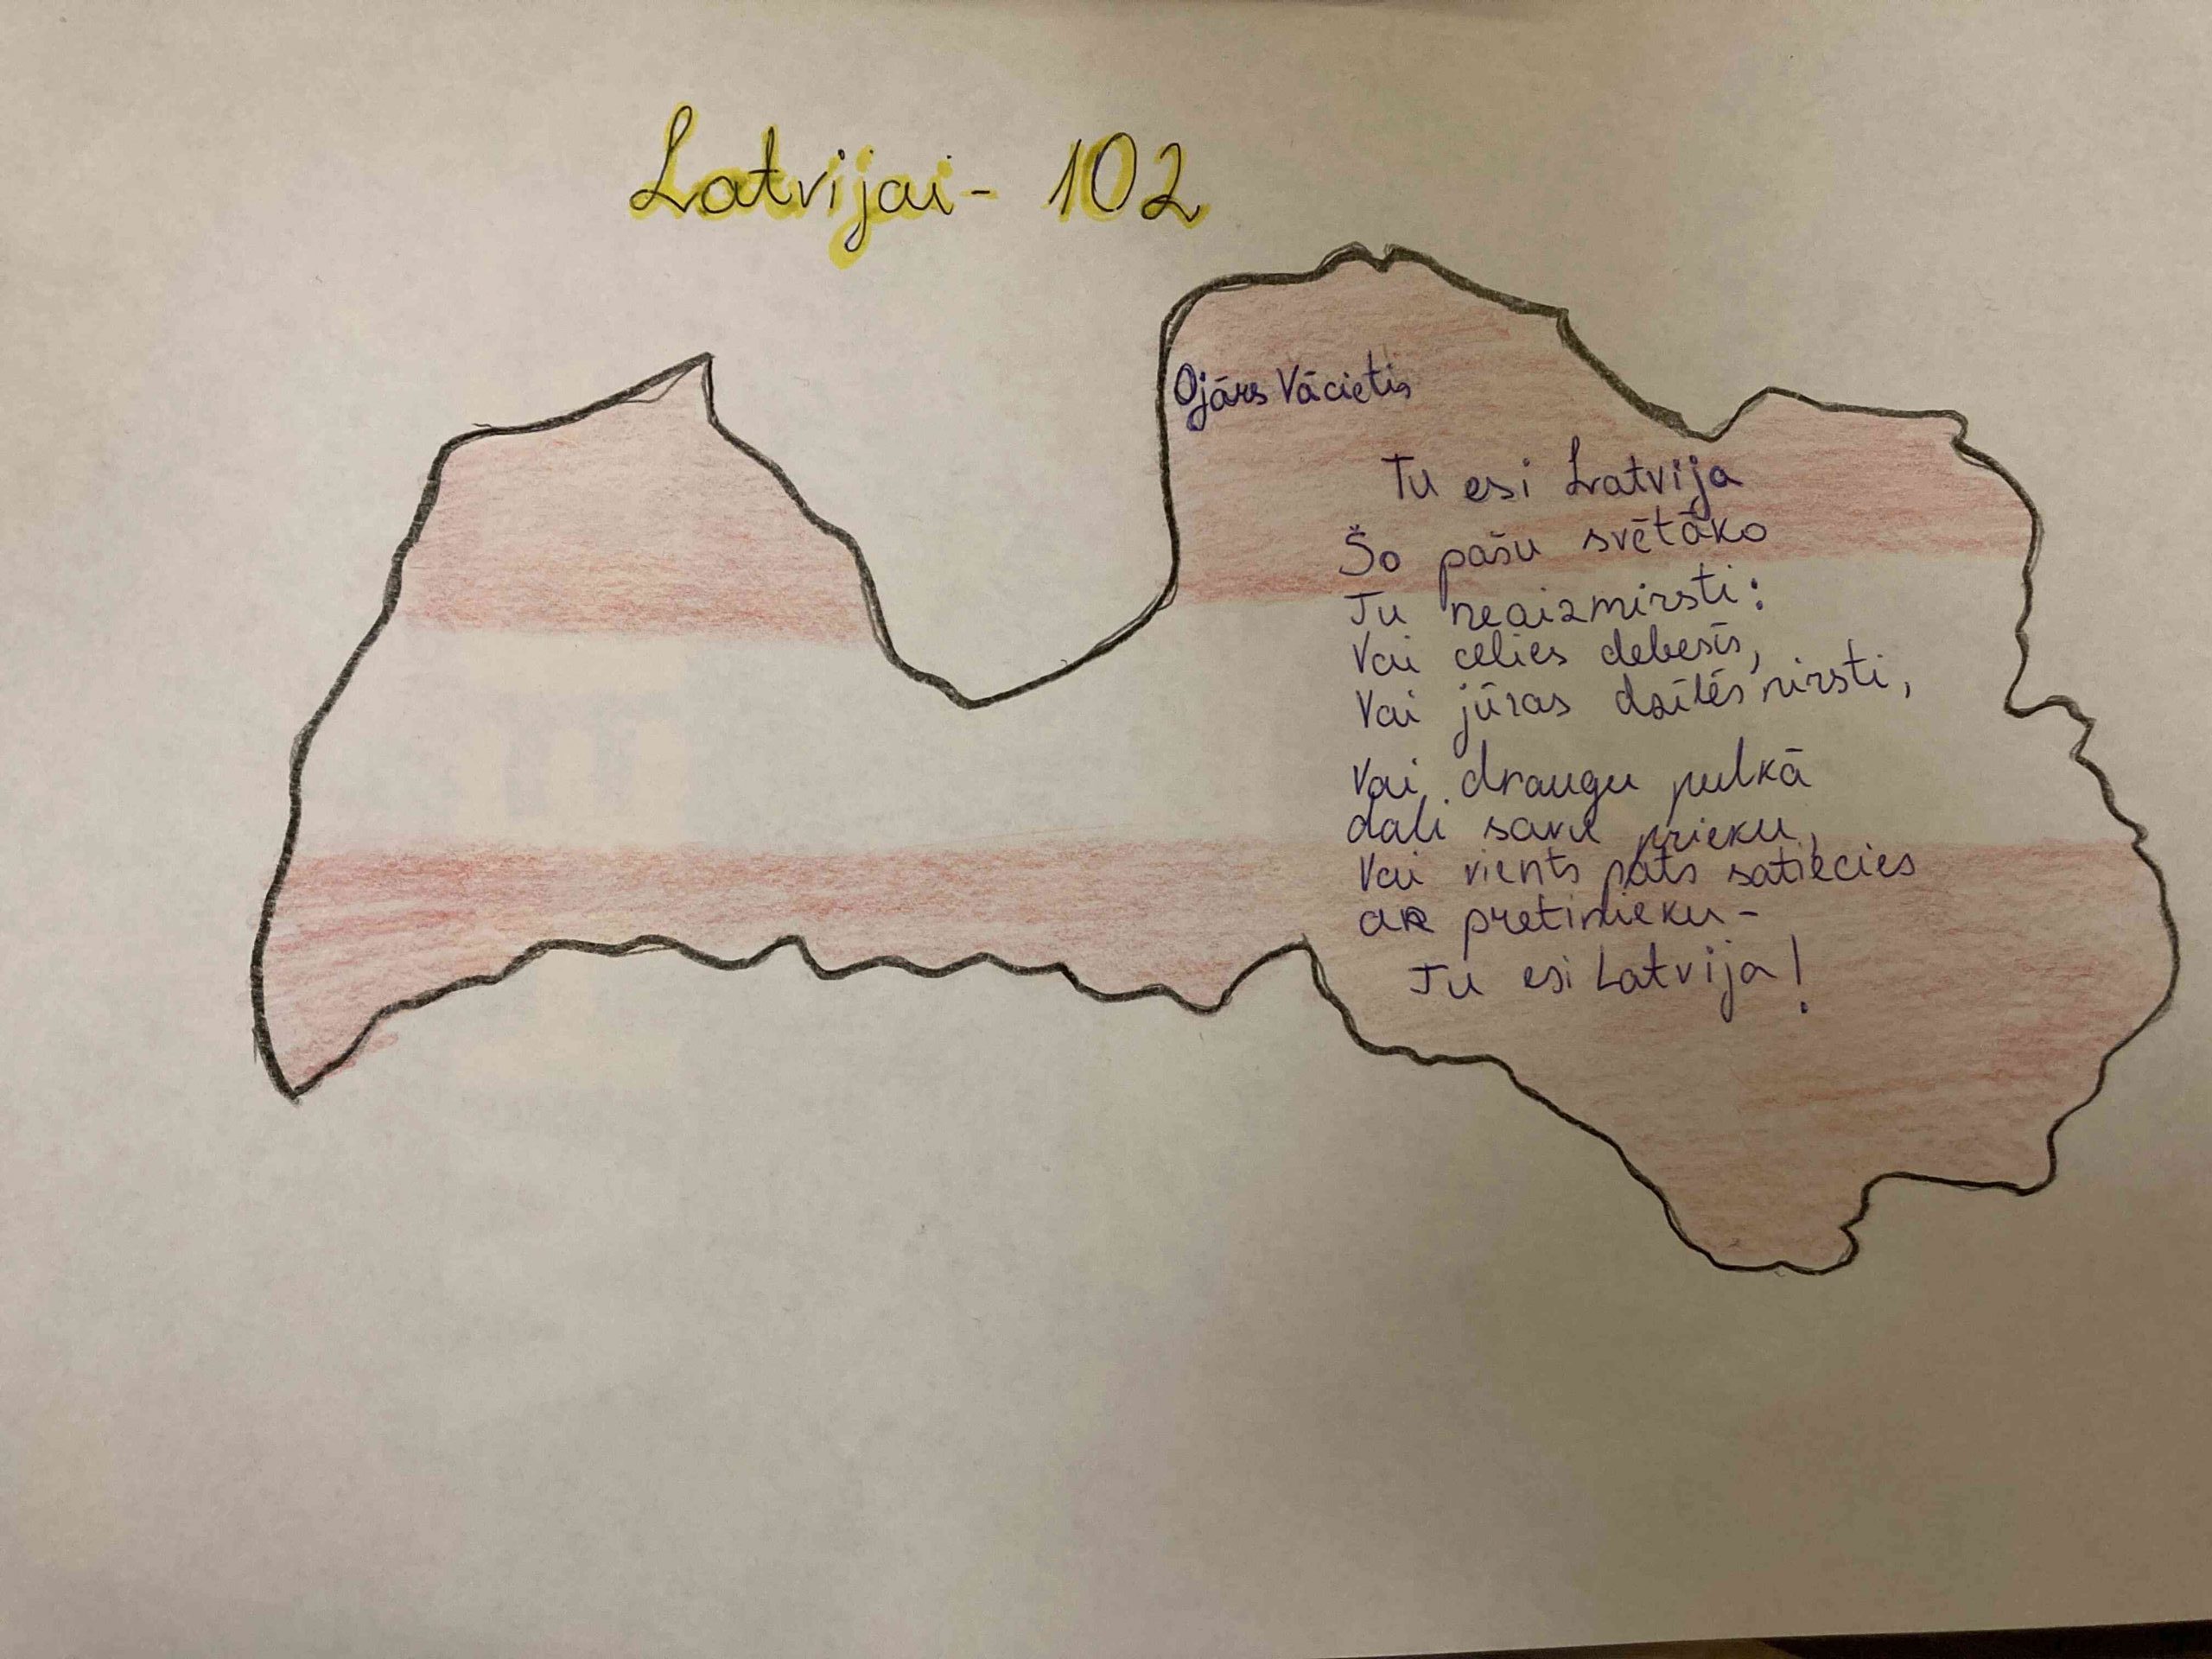 Latvijai - 102
Ojārs Vācietis
Tu esi Latvija
Šo pašu svētāko
Tu neaizmirsti:
Vai celies debesīs,
Vai jūras dzīlēs nirsti,
Vai draugu pulkā
dali savu prieku,
Vai vients pats satiecies
ar pretinieku -
Tu esi Latvija!